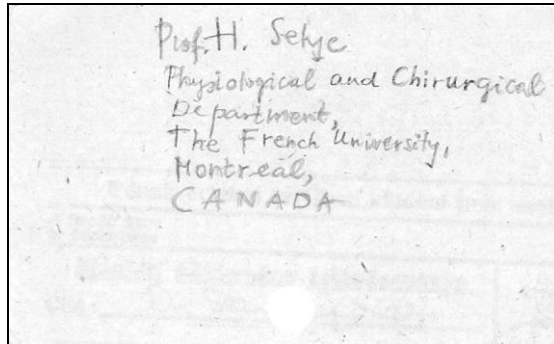 Prof. H. Selye
Physiological and Chirurgical
Department,
The French University,
Montreal,
CANADA